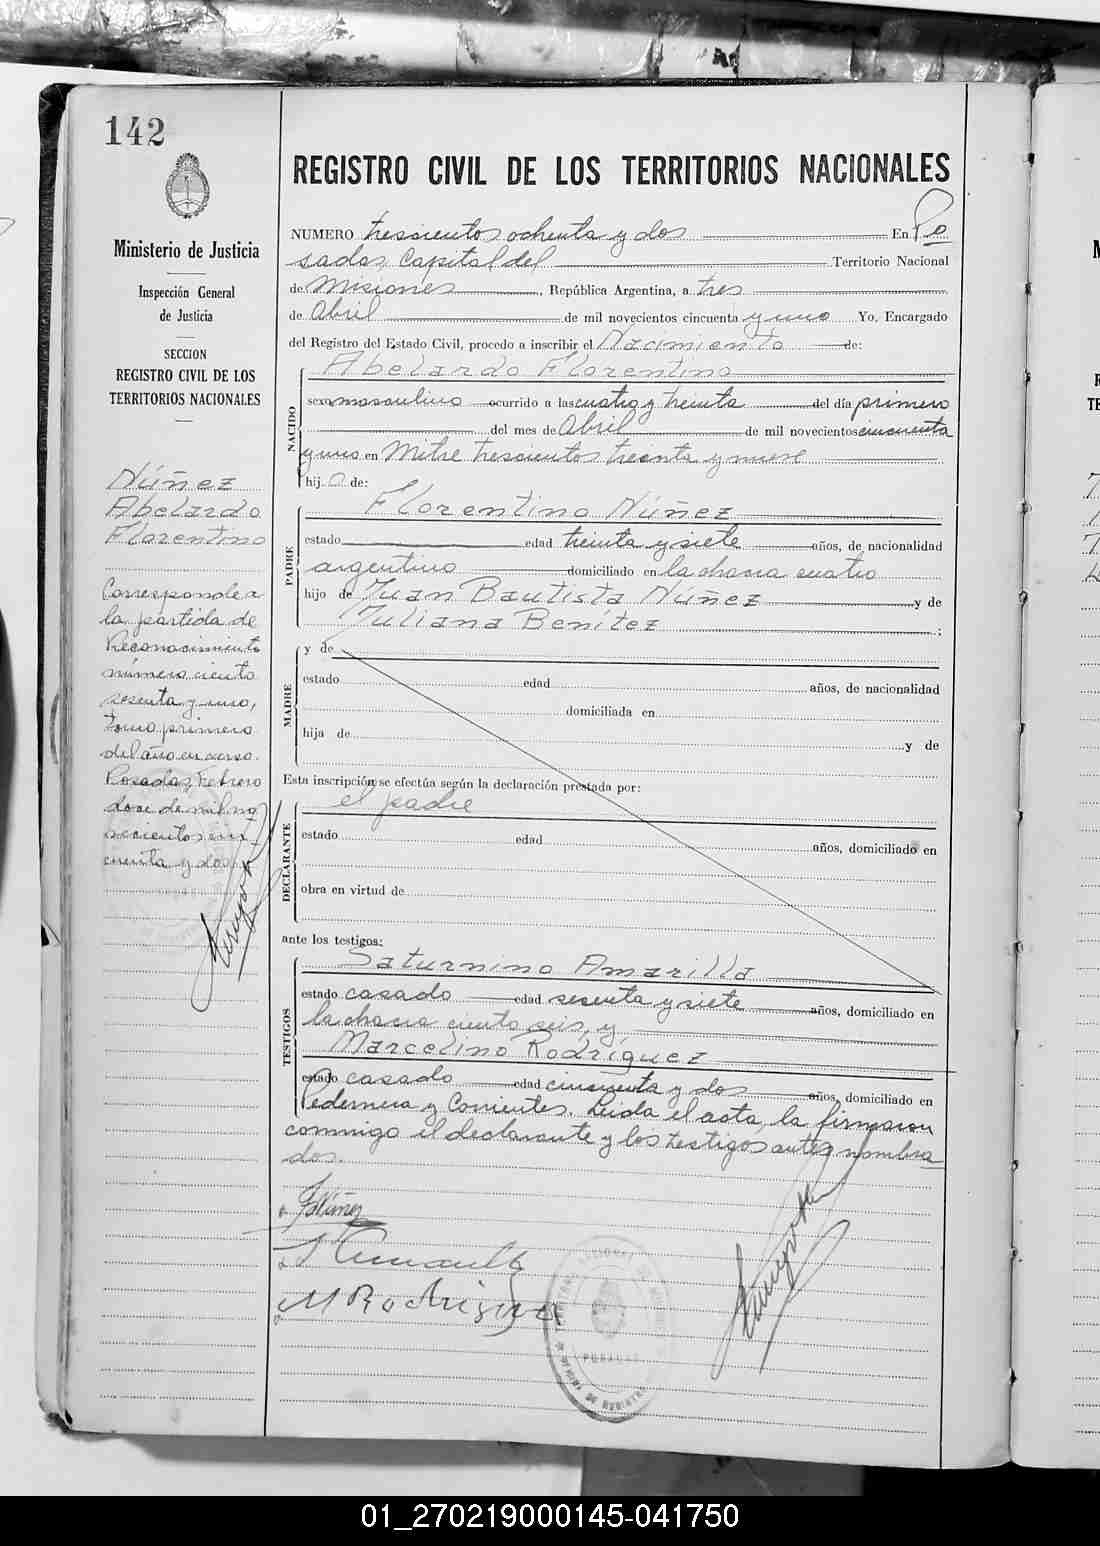 142
Ministerio de Justicia
Inspección General
de Justicia
SECCION
REGISTRO CIVIL DE LOS
TERRITORIOS NACIONALES
Núñez
Abelardo
Florentino
Corresponde a
la partida de
Reconocimiento
número ciento
sesenta y uno,
tomo primero
del año en curso.
Posadas, Febrero
doce de mil no
vecientos cin
cuenta y dos.
REGISTRO CIVIL DE LOS TERRITORIOS NACIONALES
NUMERO trescientos ochenta y dos En Po
sadas, Capital del Territorio Nacional
de Misiones, República Argentina, a tres
de Abril de mil novecientos cincuenta y uno Yo, Encargado
del Registro del Estado Civil, procedo a inscribir el Nacimiento de:
NACIDO
Abelardo Florentino
sexo masculino ocurrido a las cuatro y treinta del día primero
del mes de Abril de mil novecientos cincuenta
y uno en Mitre trescientos treinta y nueve
hijo de:
PADRE
Florentino Núñez
estado edad treinta y siete años, de nacionalidad
argentino domiciliado en la chacra cuatro
hijo de Juan Bautista Núñez y de
Juliana Benítez ;
MADRE
y de
estado edad años, de nacionalidad
domiciliada en
hija de y de
Esta inscripción se efectúa según la declaración prestada por:
DECLARANTE
el padre
estado edad años, domiciliado en
obra en virtud de
ante los testigos:
TESTIGOS
Saturnino Amarilla
estado casado edad sesenta y siete años, domiciliado en
la chacra ciento seis, y
Marcelino Rodríguez
estado casado edad cincuenta y dos años, domiciliado en
Pedernera y Corrientes. Leida el acta, la firmaron
conmigo el declarante y los testigos antes nombra
dos.
F Núñez
M Rodriguez
POSADAS
01_270219000145-041750